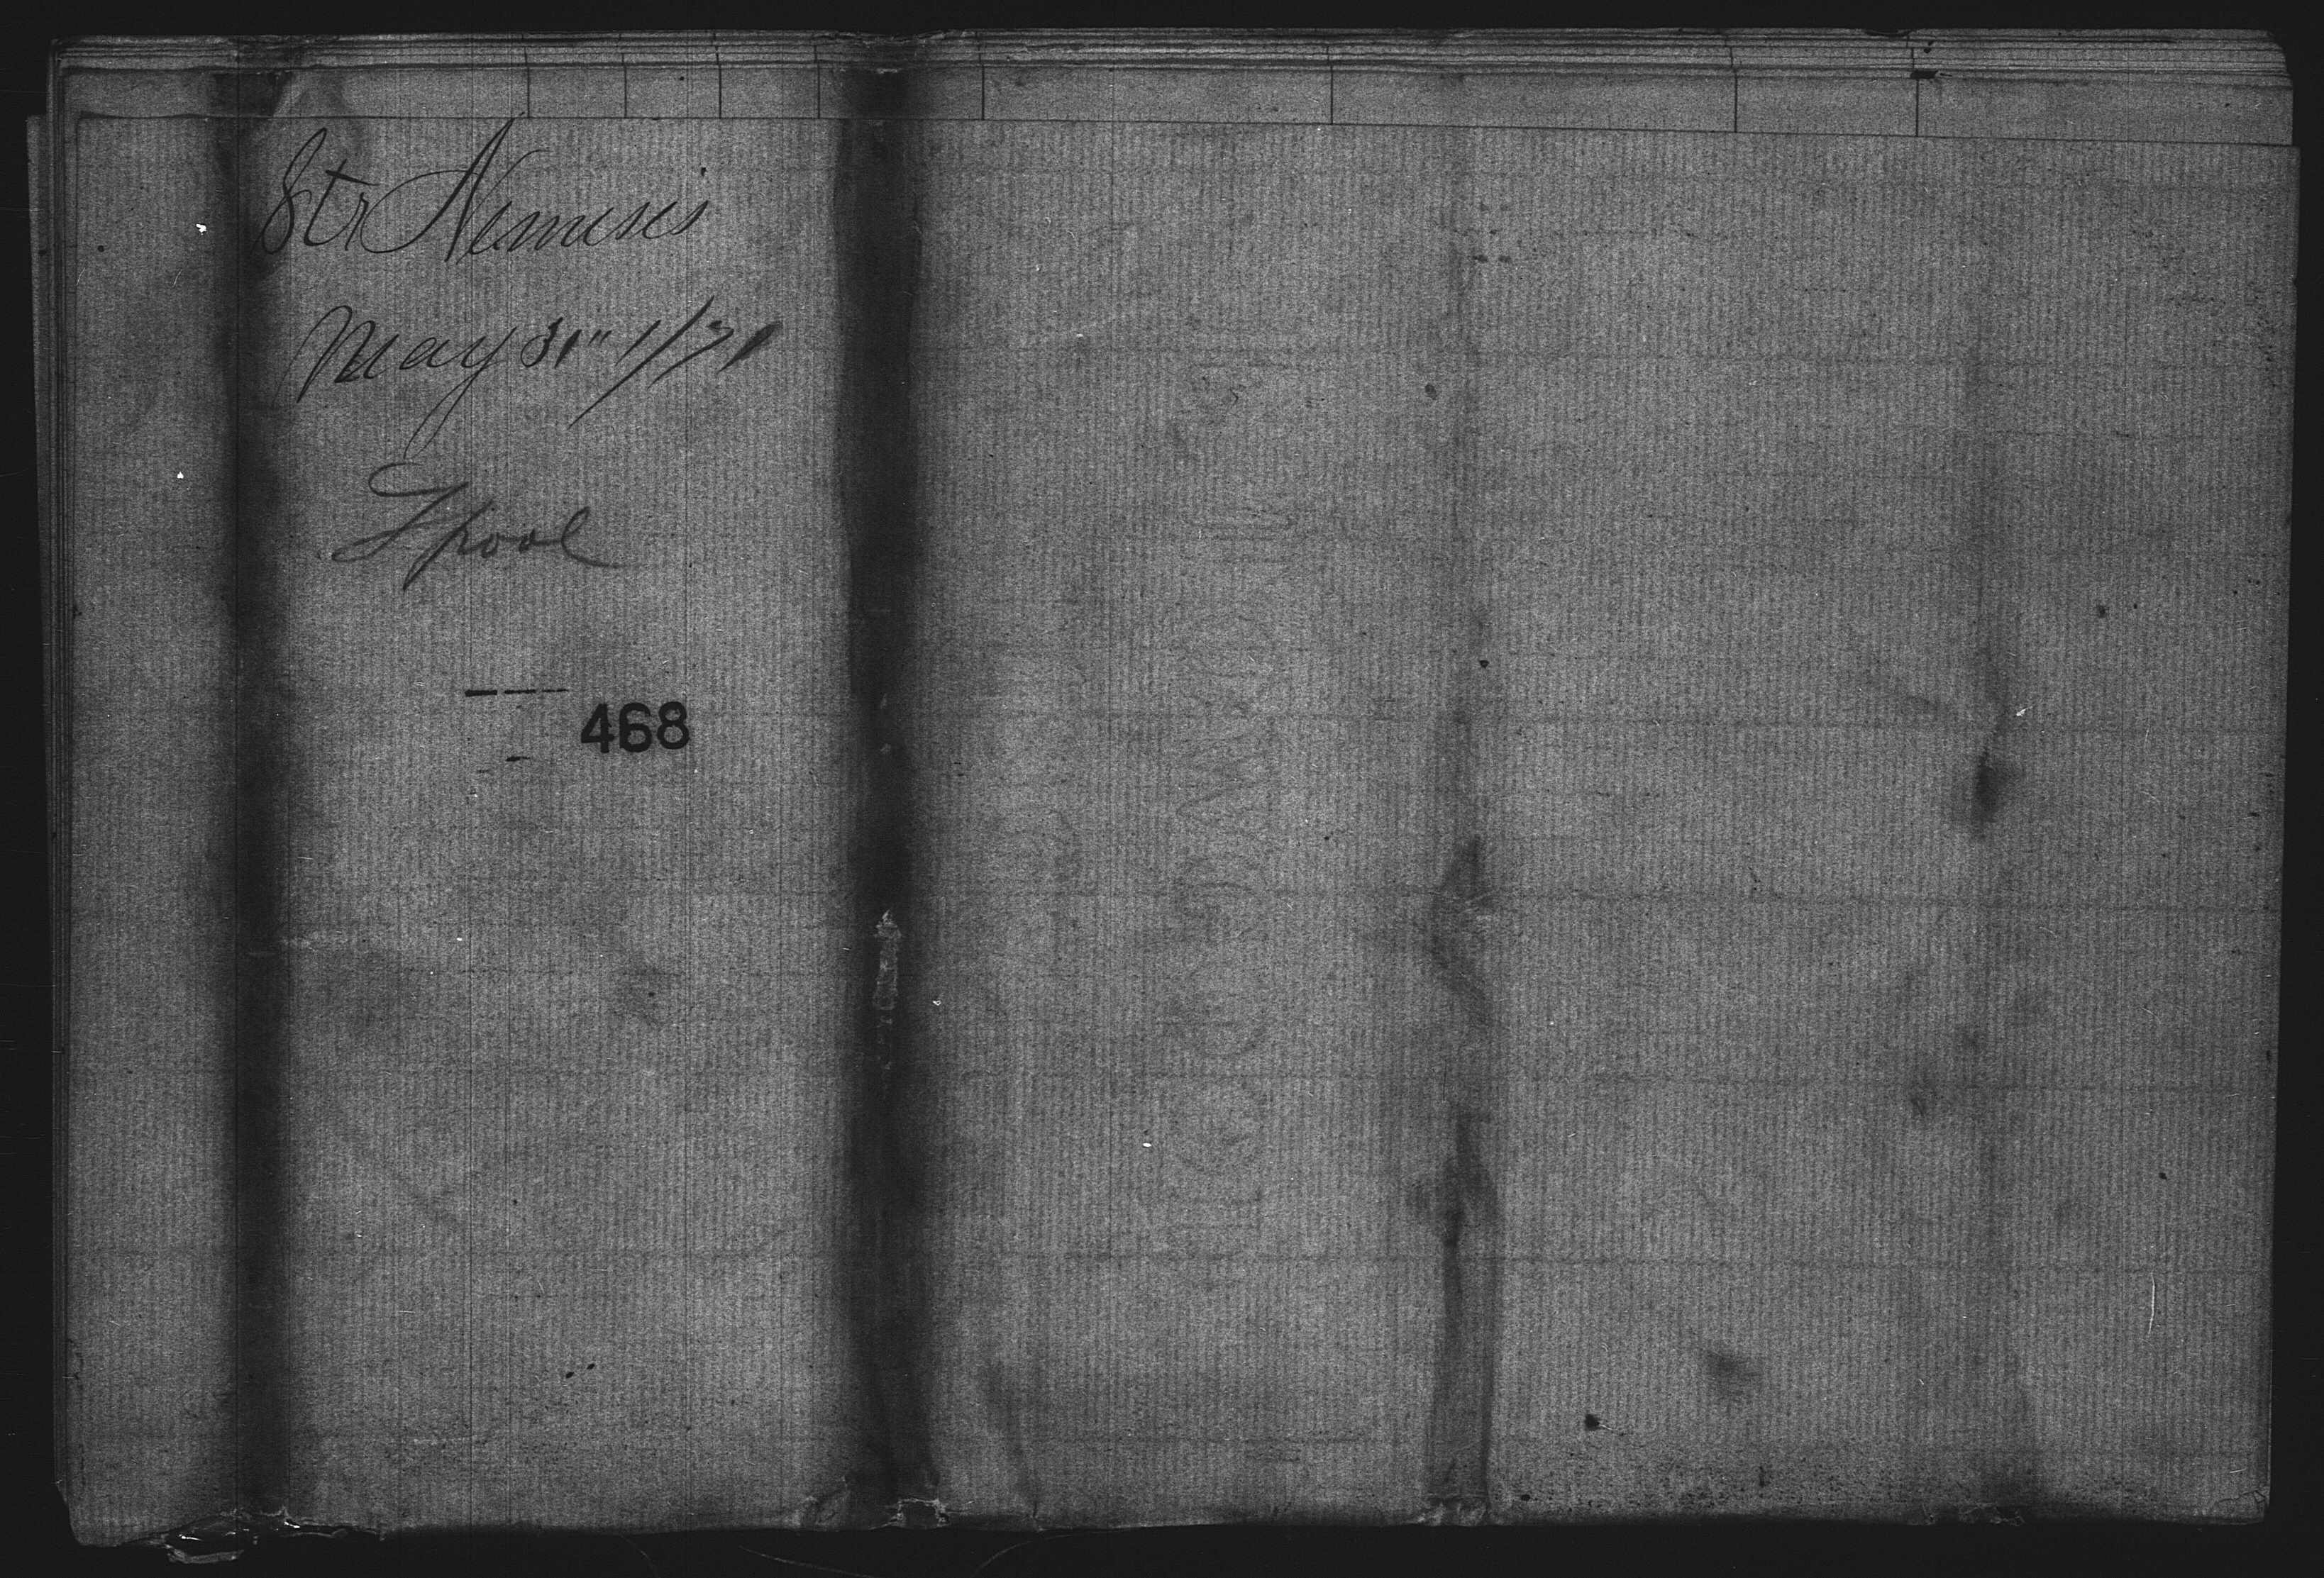 Str Nemesis
May 31" 1/71
Lpool
468